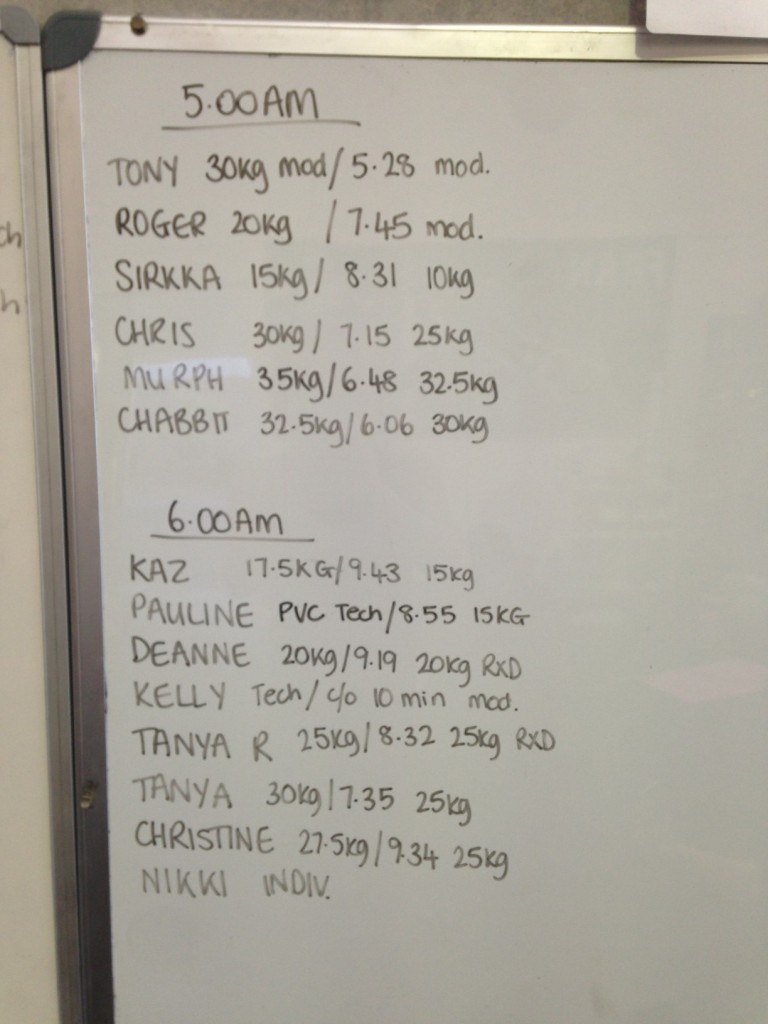 5.00AM
TONY 30kg mod/ 5.28 mod.
ROGER 20kg / 7.45 mod.
SIRKKA 15kg/ 8.31 10kg
CHRIS 30kg/ 7.15 25kg
MURPH 35kg/6.48 32.5kg
CHABBIT 32.5kg/6.06 30kg
6.00AM
KAZ 17.5KG/9.43 15kg
PAULINE PVC Tech/8.55 15KG
DEANNE 20kg/9.19 20kg RXD
KELLY Tech/ c/o 10 min mod.
TANYA R 25kg/8.32 25kg RXD
TANYA 30kg/7.35 25kg
CHRISTINE 27.5kg/9.34 25kg
NIKKI INDIV.